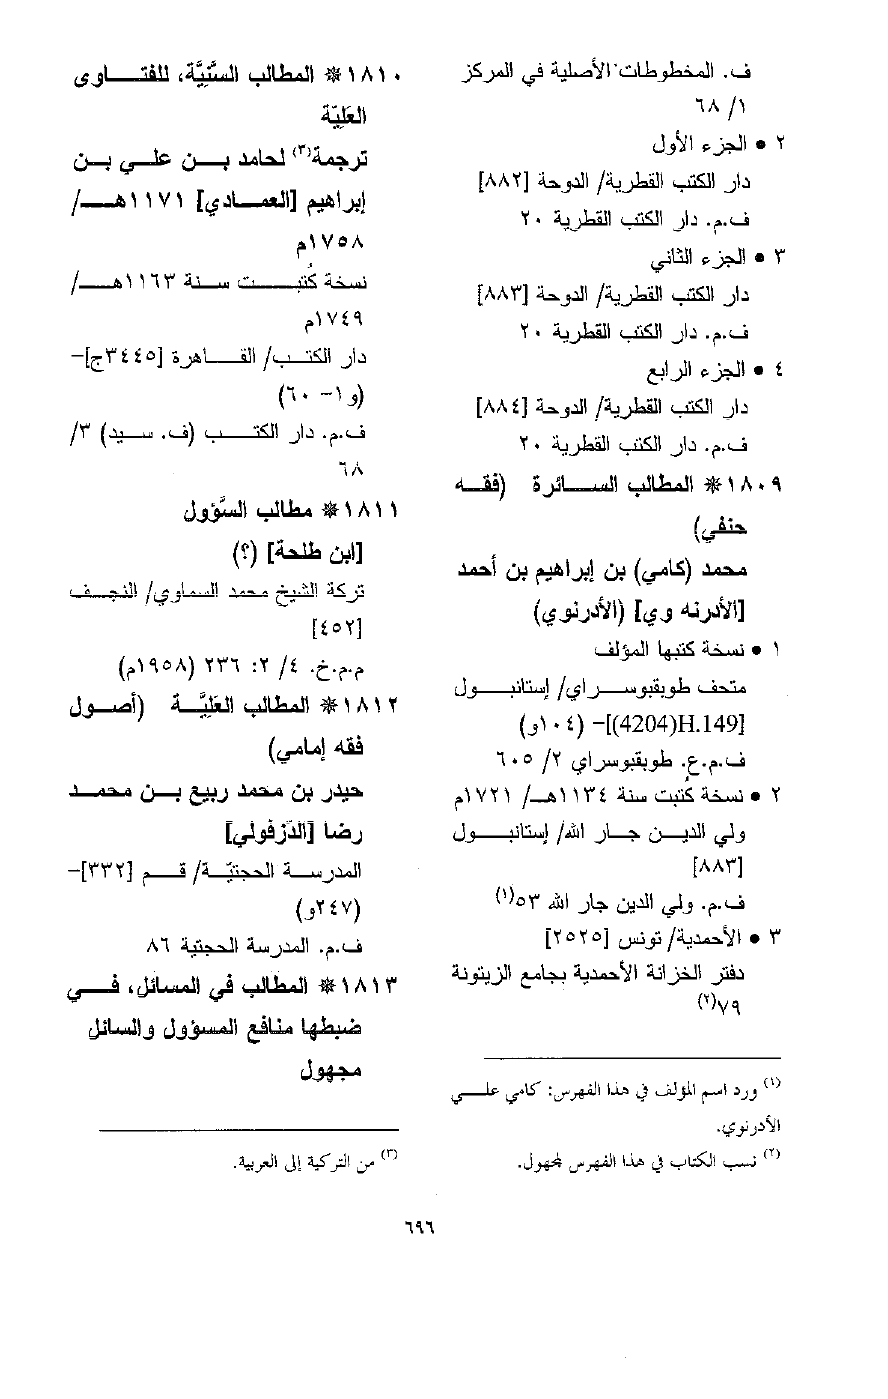 ف. المخطوطات الأصلية في المركز
١/ ٦٨
٢ • الجزء الأول
دار الكتب القطرية/ الدوحة [٨٨٢]
ف.م. دار الكتب القطرية ٢٠
٣ • الجزء الثاني
دار الكتب القطرية/ الدوحة [٨٨٣]
ف.م. دار الكتب القطرية ٢٠
٤ • الجزء الرابع
دار الكتب القطرية/ الدوحة [٨٨٤]
ف.م. دار الكتب القطرية ٢٠
١٨٠٩* المطالب السائرة (فقه
حنفي)
محمد (كامي) بن إبراهيم بن أحمد
[الأدرنه وي] (الأدرنوي)
١ • نسخة كتبها المؤلف
متحف طوبقبوسراي/ إستانبول
[(4204)H.149]– (١٠٤و)
ف.م.ع. طوبقبوسراي ٢/ ٦٠٥
٢ • نسخة كُتبت سنة ١١٣٤هـ/ ١٧٢١م
ولي الدين جار الله/ إستانبول
[٨٨٣]
ف.م. ولي الدين جار الله ٥٣(١)
٣ • الأحمدية/ تونس [٢٥٢٥]
دفتر الخزانة الأحمدية بجامع الزيتونة
٧٩(٢)
(١) ورد اسم المؤلف في هذا الفهرس: كامي علي
الأدرنوي.
(٢) نسب الكتاب في هذا الفهرس لمجهول.
١٨١٠* المطالب السَّنِيَّة، للفتاوى
العَلِيّة
ترجمة(٣) لحامد بن علي بن
إبراهيم [العمادي] ١١٧١هـ/
١٧٥٨م
نسخة كُتبت سنة ١١٦٣هـ/
١٧٤٩م
دار الكتب/ القاهرة [٣٤٤٥ج]–
(و١– ٦٠)
ف.م. دار الكتب (ف. سيد) ٣/
٦٨
١٨١١* مطالب السَّؤول
[ابن طلحة] (؟)
تركة الشيخ محمد السماوي/ النجف
[٤٥٢]
م.م.خ. ٤/ ٢: ٢٣٦ (١٩٥٨م)
١٨١٢* المطالب العَلِيَّة (أصول
فقه إمامي)
حيدر بن محمد ربيع بن محمد
رضا [الدّزفولي]
المدرسة الحجتيّة/ قم [٣٣٢]–
(٢٤٧و)
ف.م. المدرسة الحجتية ٨٦
١٨١٣* المطالب في المسائل، في
ضبطها منافع المسؤول والسائل
مجهول
(٣) من التركية إلى العربية.
٦٩٦